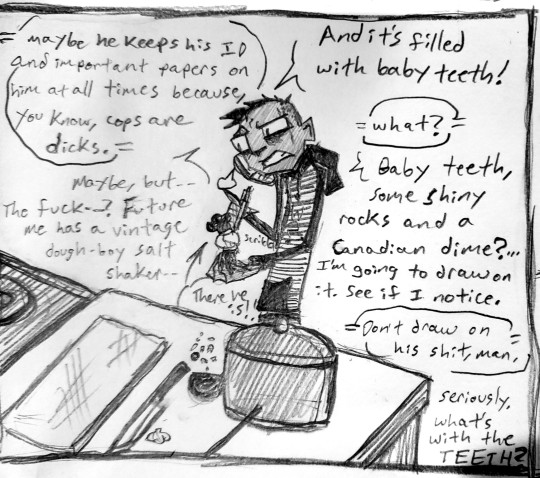 = maybe he keeps his ID
and important papers on
him at all times because,
you know, cops are
dicks. =
maybe, but--
The fuck--? Future
me has a vintage
dough-boy salt
shaker--
There he
is!!
scribble
And it's filled
with baby teeth!
= what? =
Baby teeth,
some shiny
rocks and a
Canadian dime?...
I'm going to draw on
it. See if I notice.
= Don't draw on =
his shit, man.
seriously.
what's
with the
TEETH?